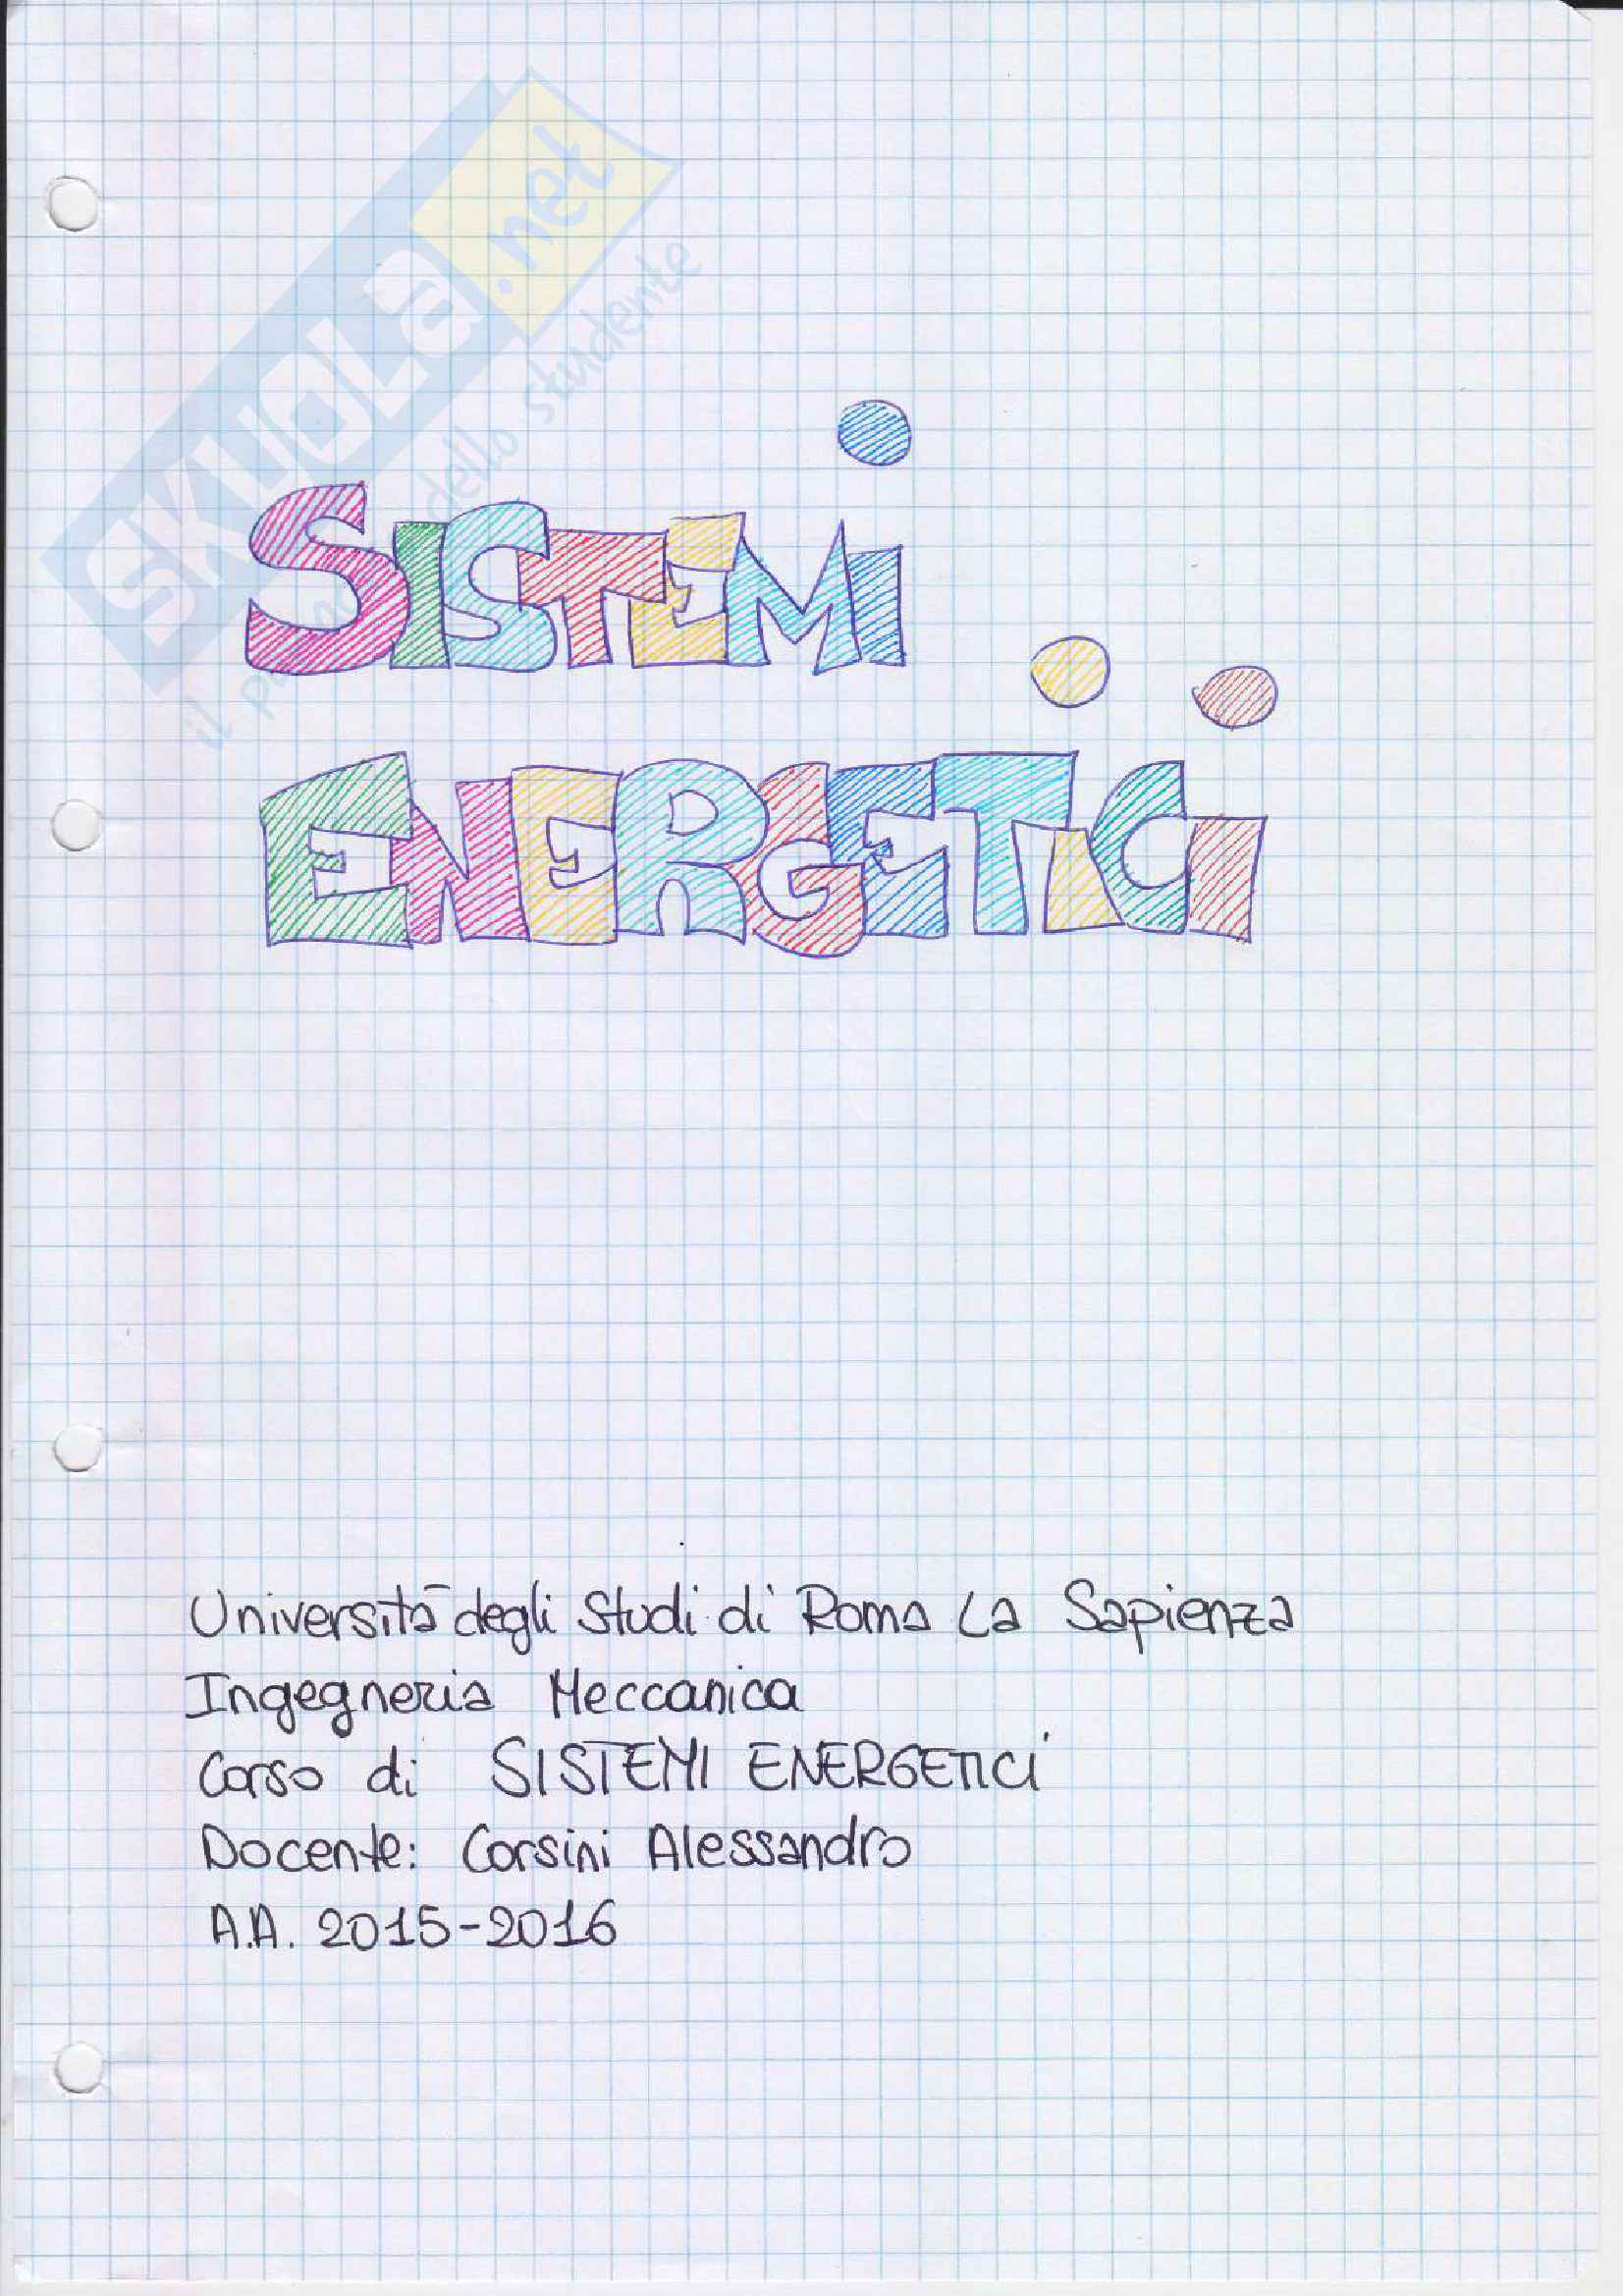 SKUOLA.net
dello studente
SiSTEMi
ENERGETiCi
Università degli Studi di Roma La Sapienza
Ingegneria Meccanica
Corso di SISTEMI ENERGETICI
Docente: Corsini Alessandro
A.A. 2015-2016